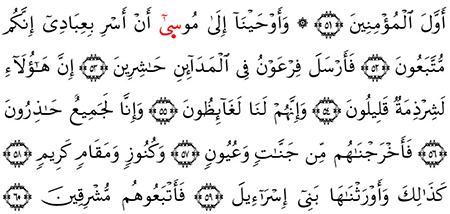 أَوَّلَ الْمُؤْمِنِينَ ﴿٥١﴾ ۞ وَأَوْحَيْنَآ إِلَىٰ مُوسَىٰٓ أَنْ أَسْرِ بِعِبَادِىٓ إِنَّكُم
مُّتَّبَعُونَ ﴿٥٢﴾ فَأَرْسَلَ فِرْعَوْنُ فِى الْمَدَآئِنِ حَـٰشِرِينَ ﴿٥٣﴾ إِنَّ هَـٰٓؤُلَآءِ
لَشِرْذِمَةٌ قَلِيلُونَ ﴿٥٤﴾ وَإِنَّهُمْ لَنَا لَغَآئِظُونَ ﴿٥٥﴾ وَإِنَّا لَجَمِيعٌ حَـٰذِرُونَ
﴿٥٦﴾ فَأَخْرَجْنَـٰهُم مِّن جَنَّـٰتٍ وَعُيُونٍ ﴿٥٧﴾ وَكُنُوزٍ وَمَقَامٍ كَرِيمٍ ﴿٥٨﴾
كَذَٰلِكَ وَأَوْرَثْنَـٰهَا بَنِىٓ إِسْرَٰٓءِيلَ ﴿٥٩﴾ فَأَتْبَعُوهُم مُّشْرِقِينَ ﴿٦٠﴾